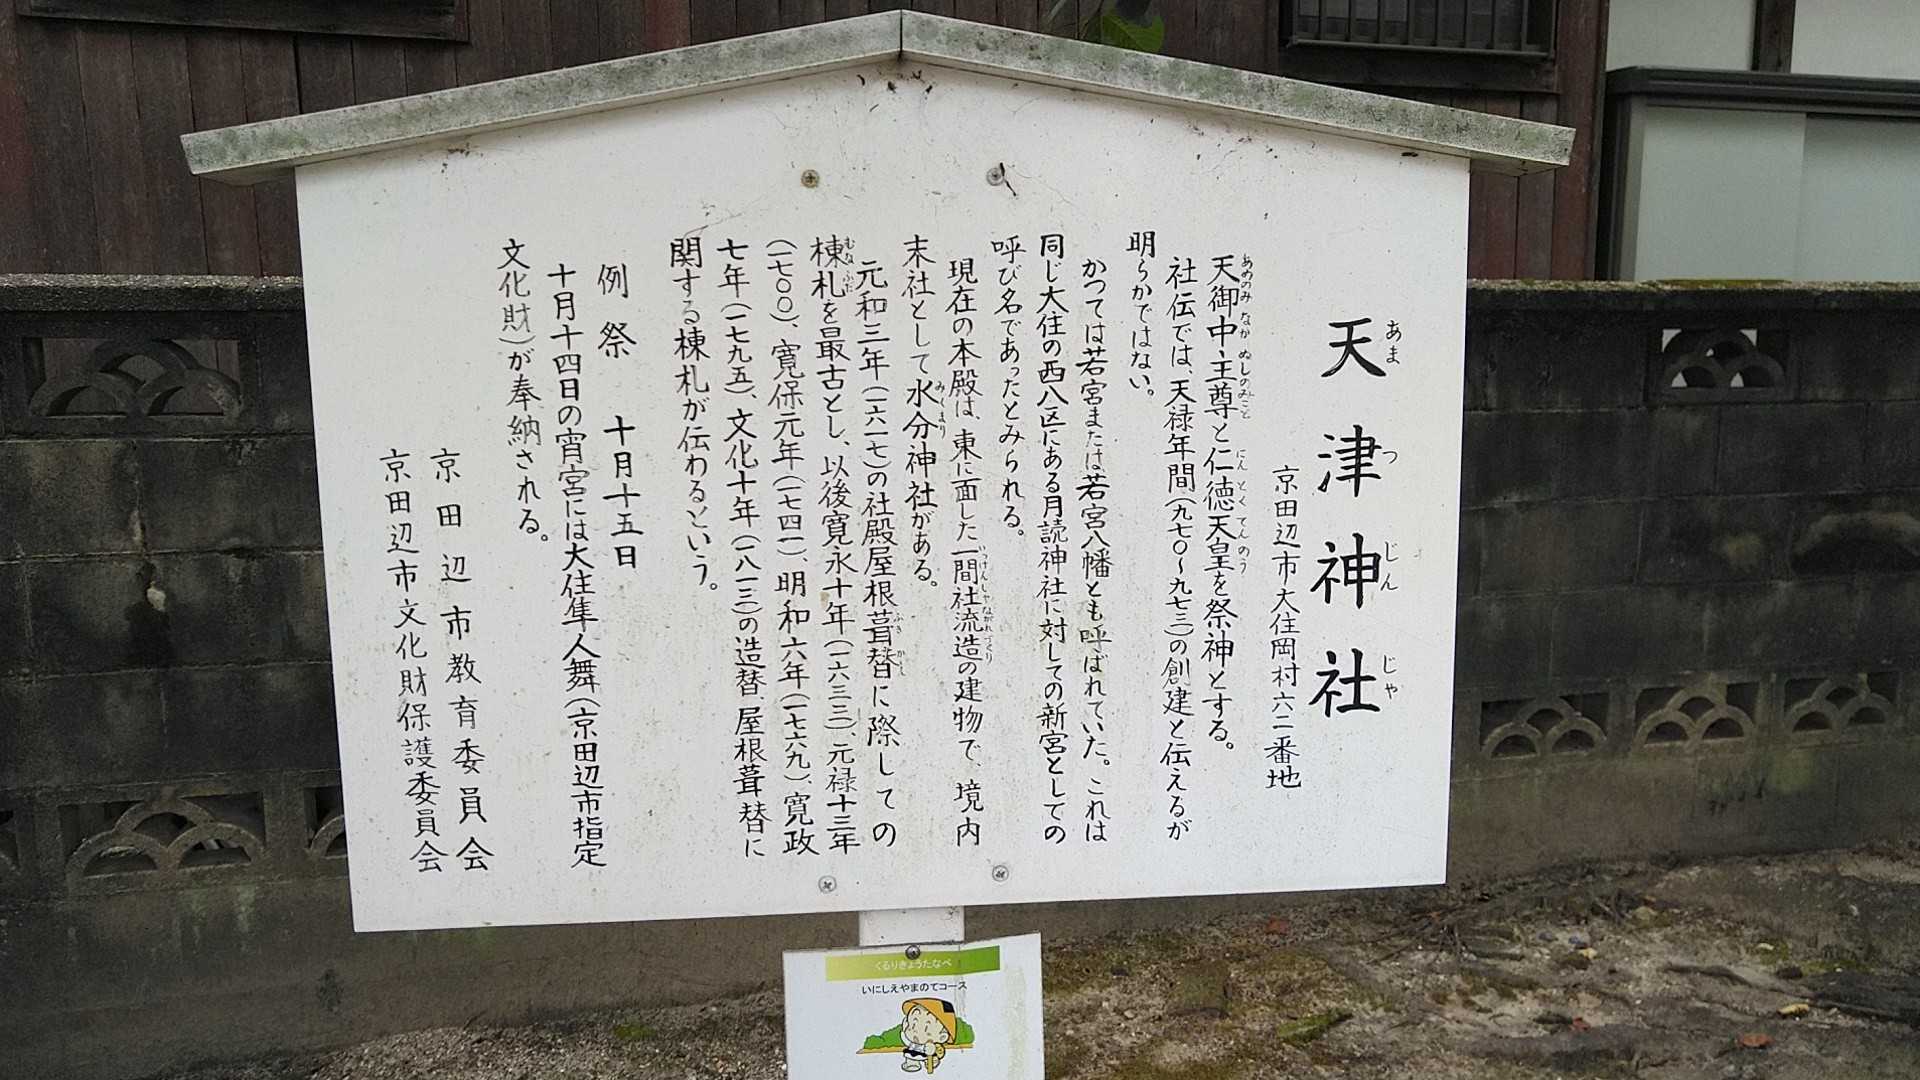 天津神社
あまつじんじゃ
京田辺市大住岡村六二番地
天御中主尊と仁徳天皇を祭神とする。
あめのみなかぬしのみこと にんとくてんのう
社伝では、天禄年間(九七〇〜九七三)の創建と伝えるが
明らかではない。
かつては若宮または若宮八幡とも呼ばれていた。これは
同じ大住の西八区にある月読神社に対しての新宮としての
呼び名であったとみられる。
現在の本殿は、東に面した一間社流造の建物で、境内
いっけんしゃながれづくり
末社として水分神社がある。
みくまり
元和三年(一六一七)の社殿屋根葺替に際しての
ふきかえ
棟札を最古とし、以後寛永十年(一六三三)、元禄十三年
むなふだ
(一七〇〇)、寛保元年(一七四一)、明和六年(一七六九)、寛政
七年(一七九五)、文化十年(一八一三)の造替、屋根葺替に
関する棟札が伝わるという。
例祭 十月十五日
十月十四日の宵宮には大住隼人舞(京田辺市指定
文化財)が奉納される。
京田辺市教育委員会
京田辺市文化財保護委員会
くるりきょうたなべ
いにしえやまのてコース